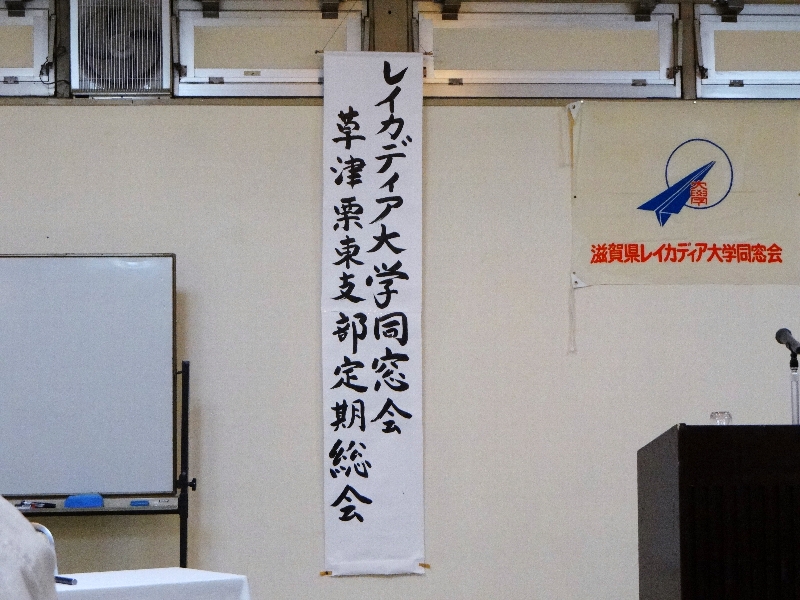 レイカディア大学同窓会
草津栗東支部定期総会
大学
滋賀県レイカディア大学同窓会